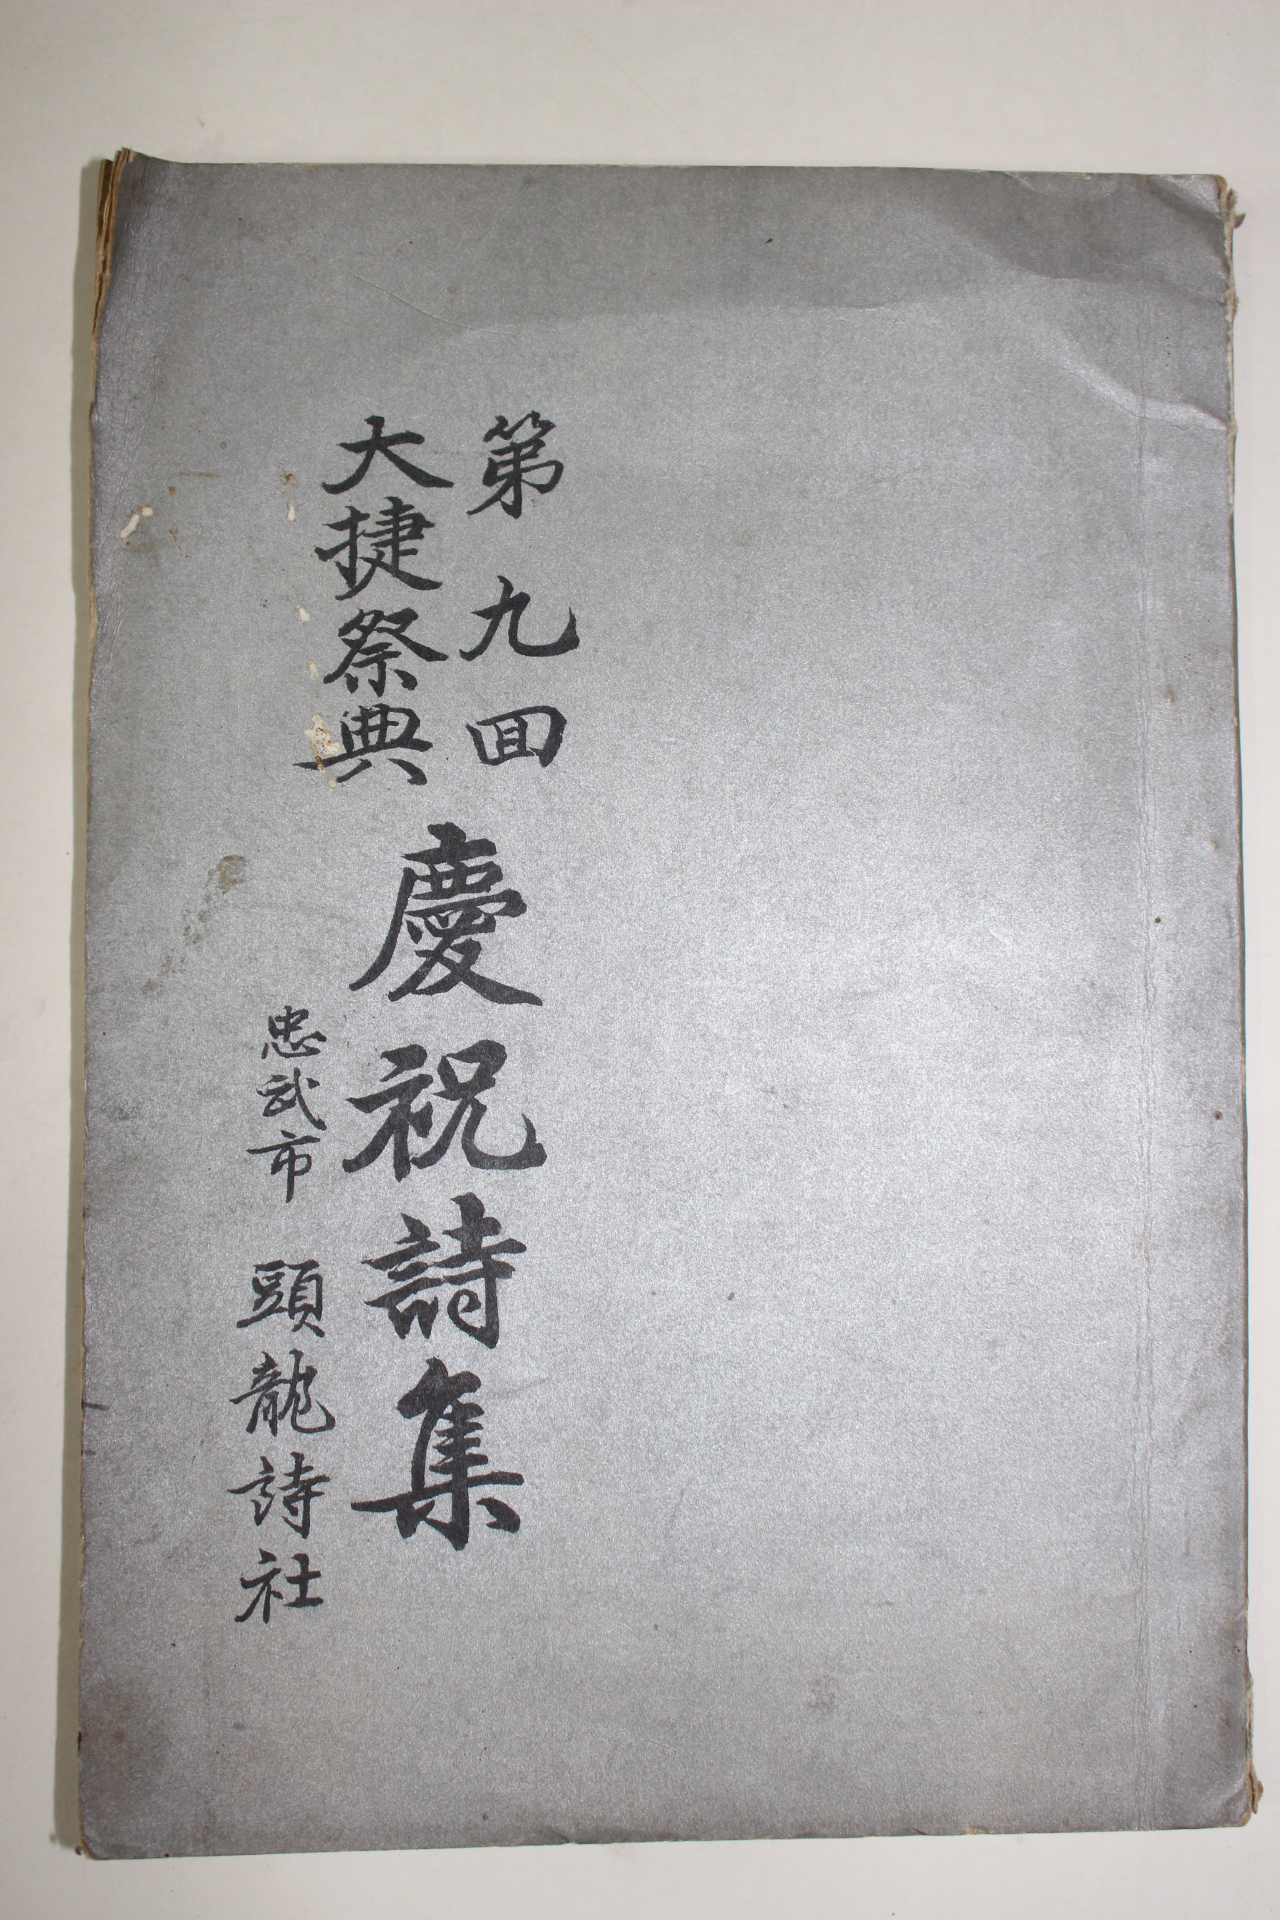 第九囬
大捷祭典
慶祝詩集
忠武市 頭龍詩社